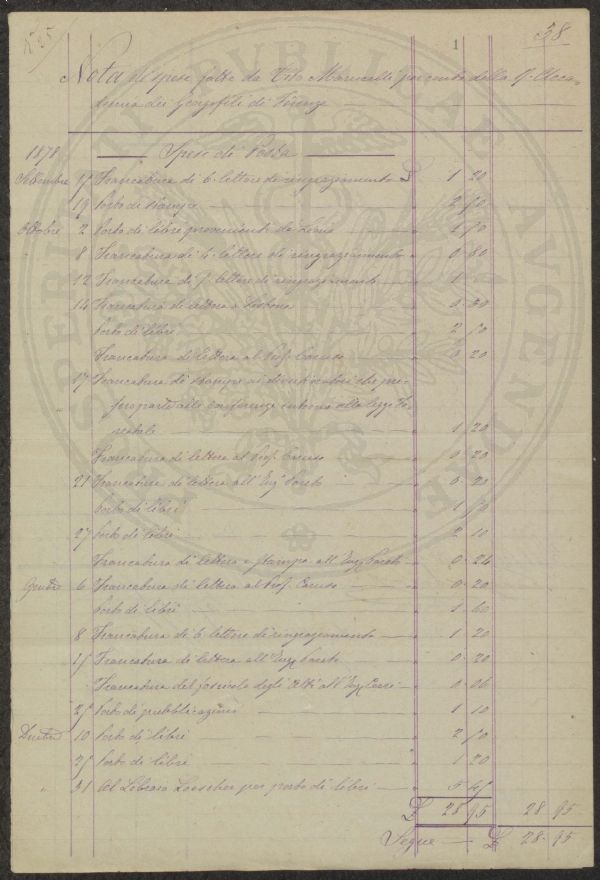 N° 25
1
58
Nota di spese fatte da Vito Marucelli per conto della R. Acca-
demia dei Georgofili di Firenze
1878
Spese di Posta
Settembre 15 Francatura di 6 lettere di ringraziamento £ 1 20
19 Porto di stampe 2 70
Ottobre 2 Porto di libri provenienti da 1 70
" 8 Francatura di 4 lettere di ringraziamento 0 80
12 Francatura di lettere di ringraziamento 1
14 Francatura di lettera a Lisbona 0 30
Porto di libri 2 70
Francatura di lettera al Prof. Caruso 0 20
17 Francatura di stampe ai che pre-
sero parte alle conferenze intorno alla legge Fo-
restale 1 20
Francatura di lettera al Prof. Caruso 0 20
21 Francatura di lettera all' Ing. Pareto 0 20
Porto di libri 1 70
27 Porto di libri 2 10
Francatura di lettera e stampa all' Ing. Pareto 0 24
6 Francatura di lettera al Prof. Caruso 0 20
Porto di libri 1 60
8 Francatura di 6 lettere di ringraziamento 1 20
15 Francatura di lettera all' Ing. Pareto 0 20
Francatura del fascicolo degli Atti all' Ing. 0 06
25 Porto di pubblicazioni 1 10
10 Porto di libri 2 70
25 Porto di libri 1 20
" 31 Al Libraio Loescher per porto di libri 5 45
£ 28 95 28 95
Segue £ 28 95
SPERITATI PVBLICAE AVGENDAE